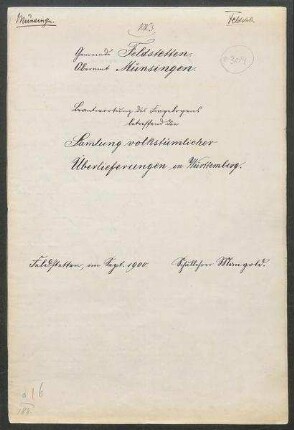 Münsingen
Feldstetten
Gemeinde Feldstetten.
Oberamt Münsingen.
Beantwortung des Fragebogens
betreffend die
Samlung volkstümlicher
Überlieferungen, in Württemberg.
Feldstetten, im Sept. 1900. Schullehrer Mangold.